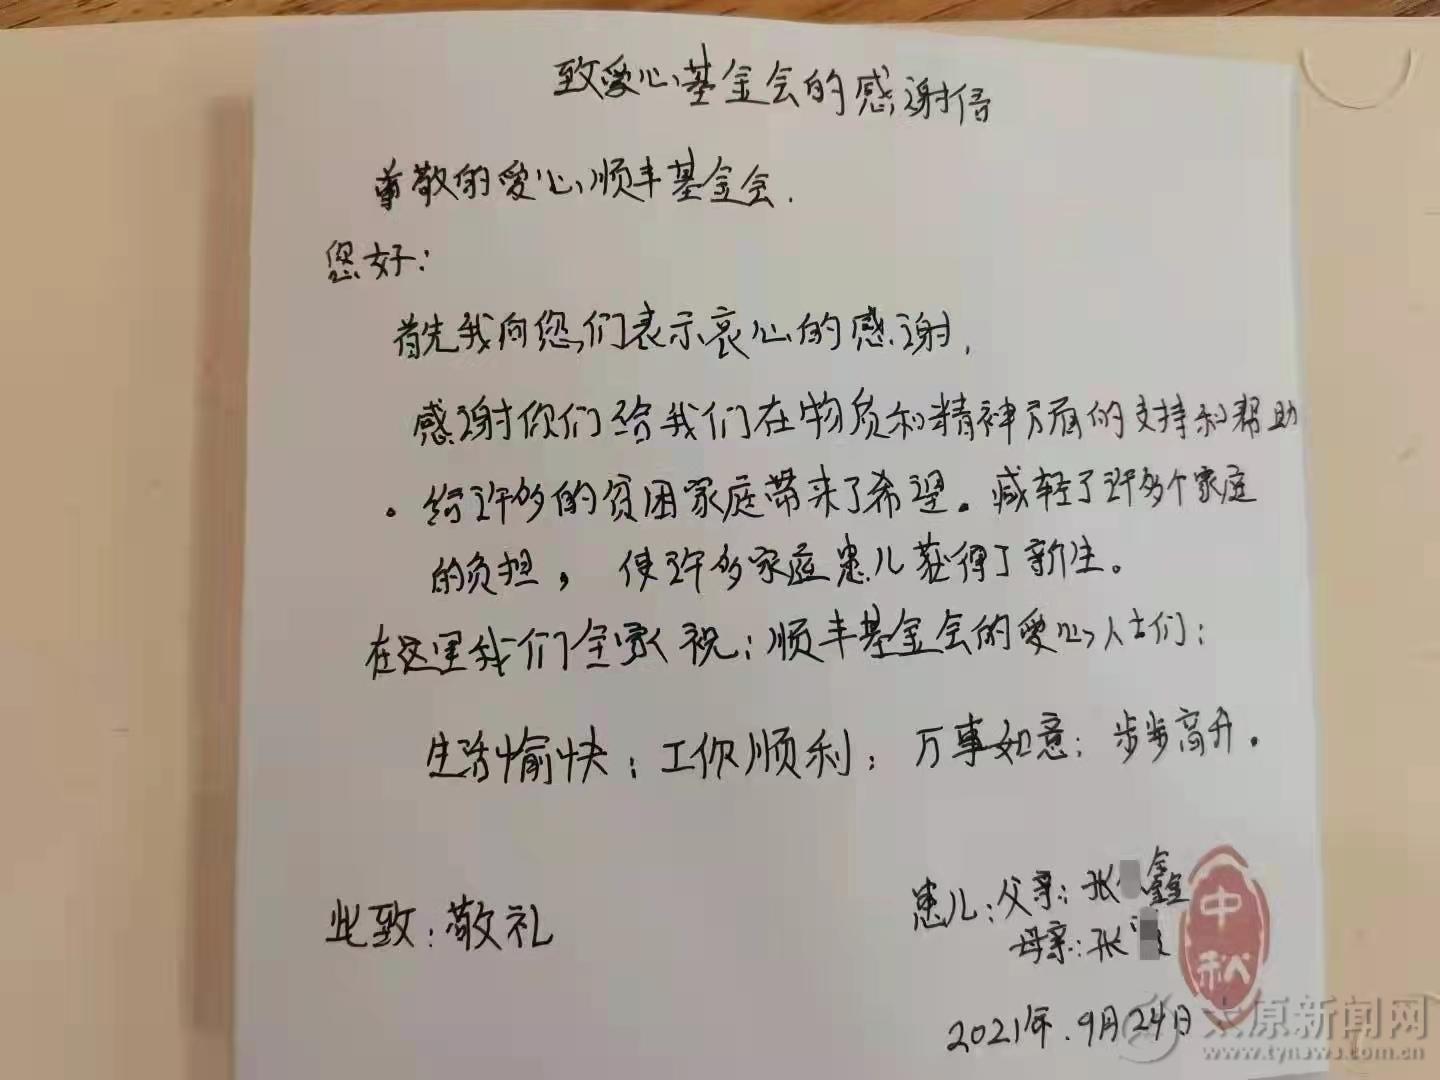 致爱心基金会的感谢信
尊敬的爱心顺丰基金会.
您好:
首先我向您们表示衷心的感谢.
感谢你们给我们在物质和精神方面的支持和帮助
。给许多的贫困家庭带来了希望。减轻了许多个家庭
的负担，使许多家庭患儿获得了新生。
在这里我们全家祝:顺丰基金会的爱心人士们:
生活愉快;工作顺利;万事如意;步步高升。
此致:敬礼
患儿:父亲:张 鑫
母亲:张
2021年.9月24日
中秋
太原新闻网
www.tynews.com.cn